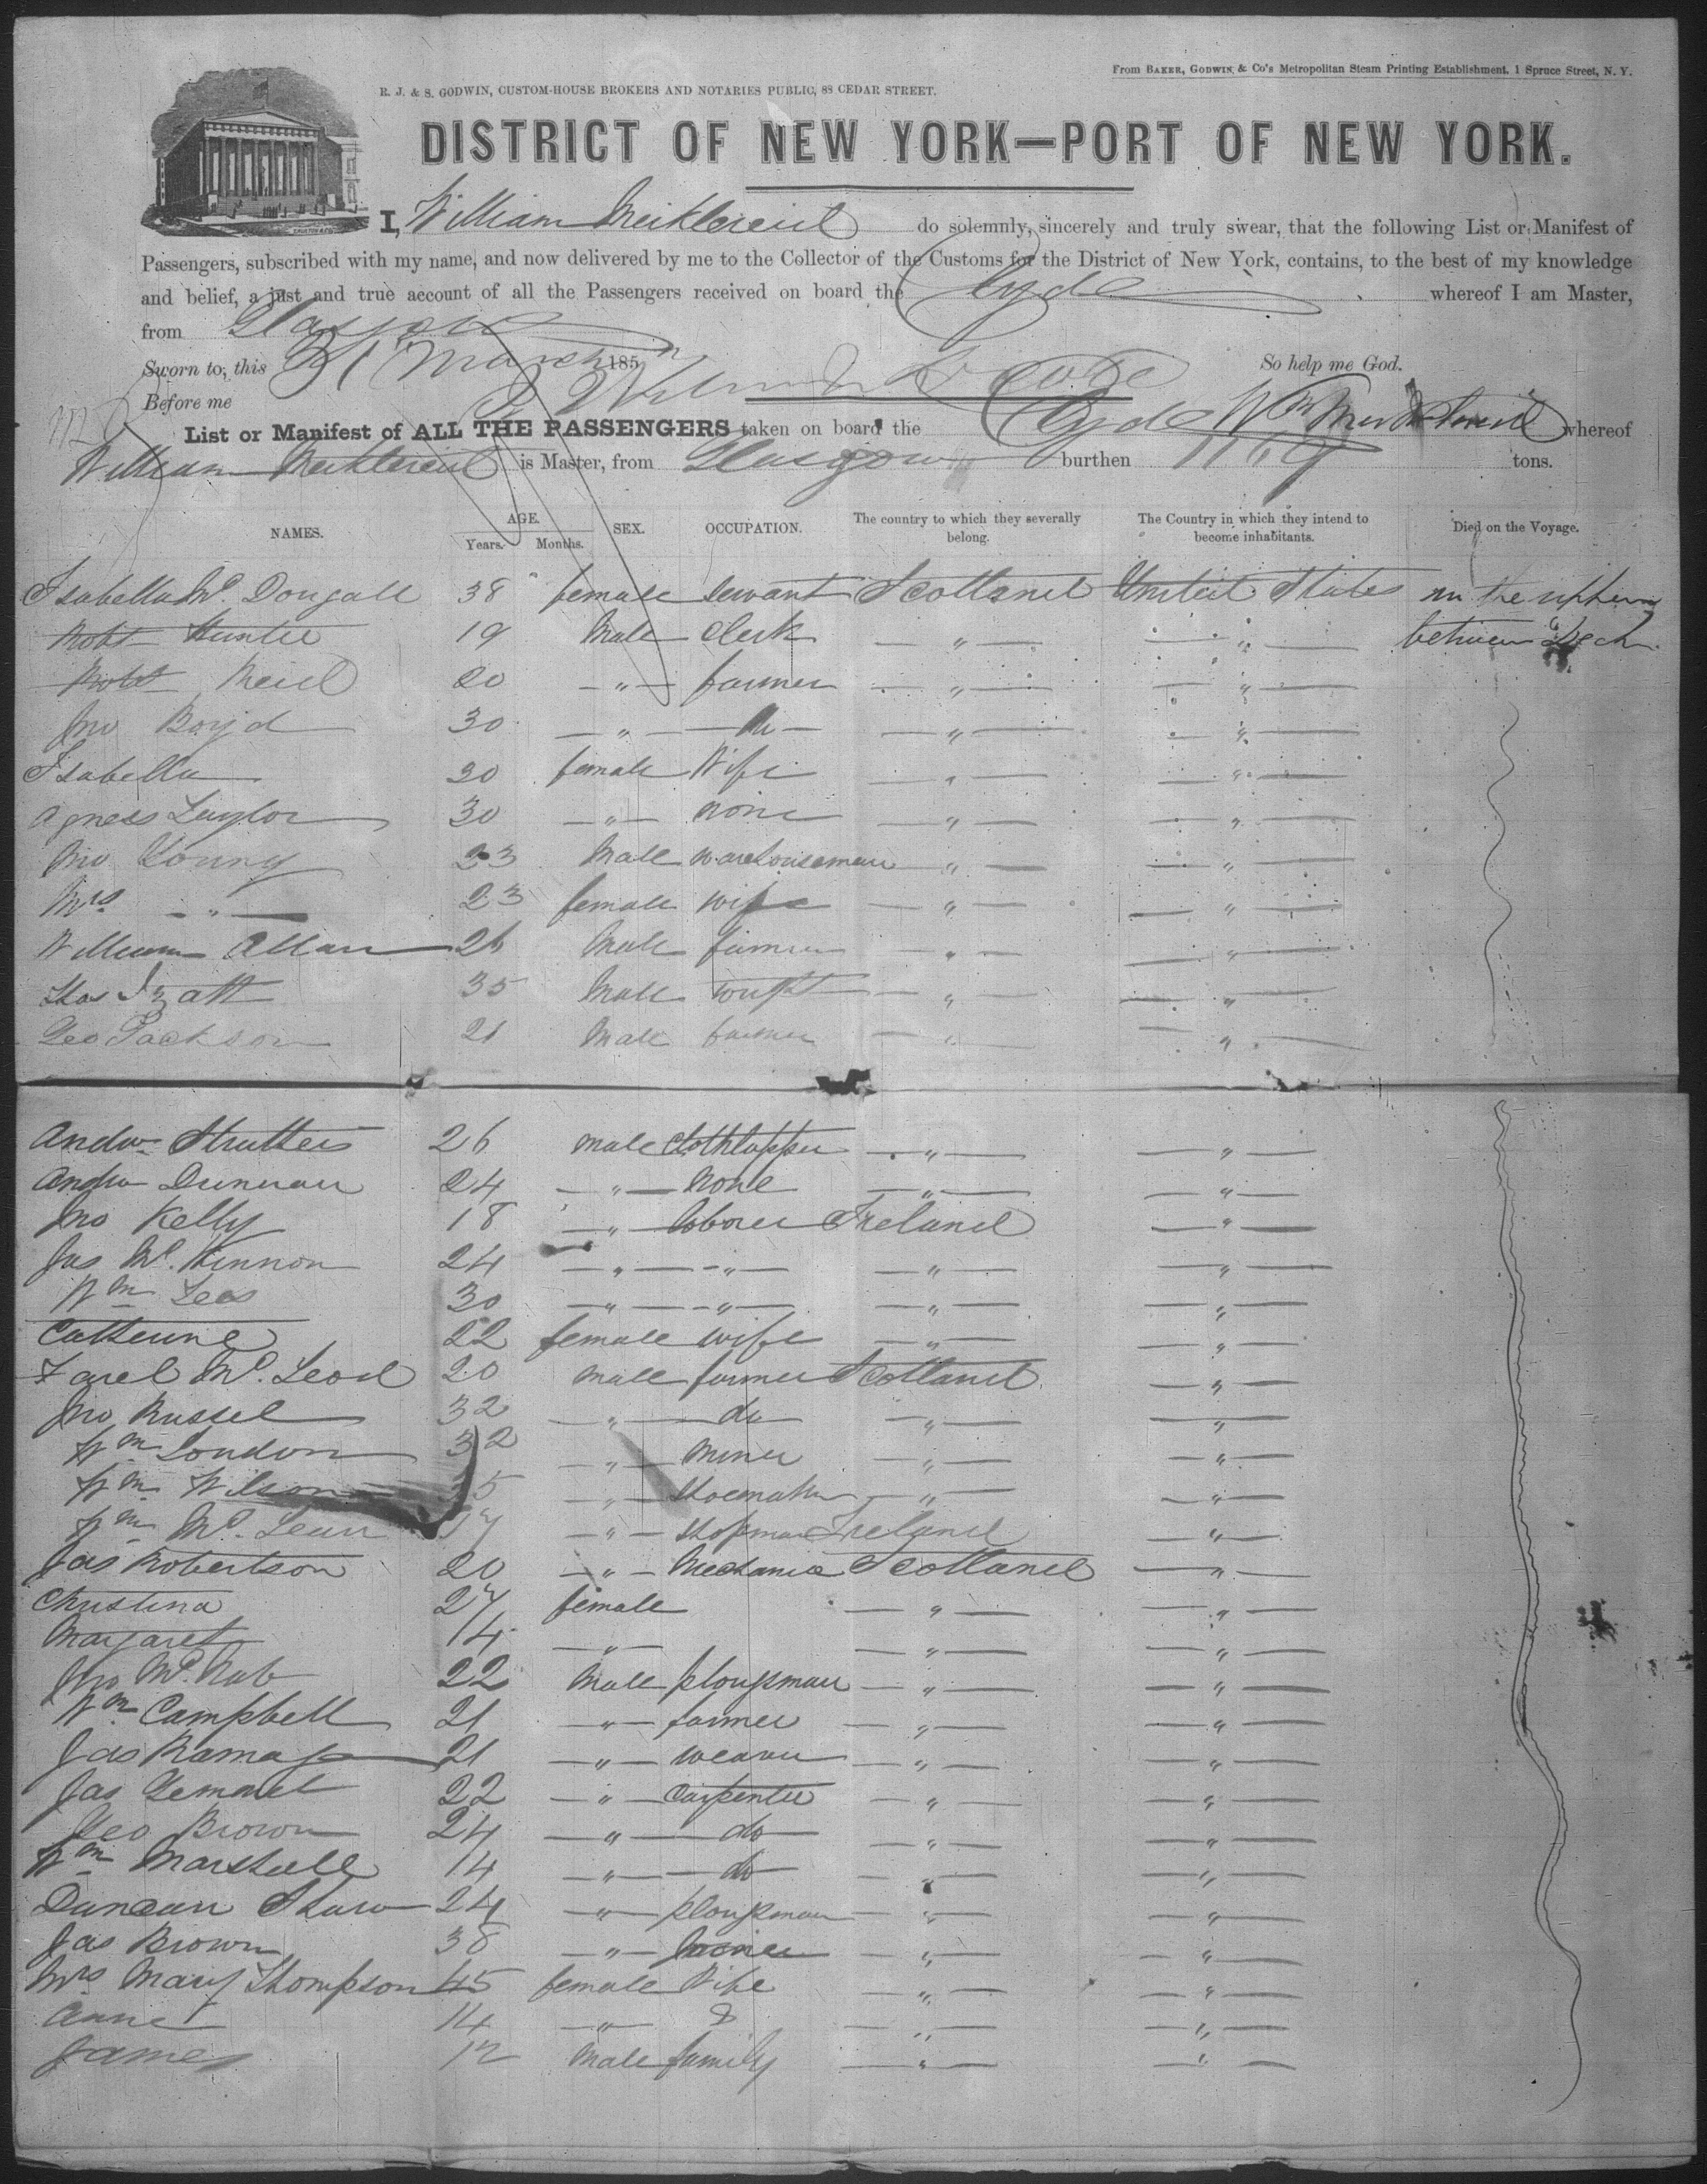 From BAKER, GODWIN, & Co's Metropolitan Steam Printing Establishment, 1 Spruce Street, N. Y.
R. J. & S. GODWIN, CUSTOM-HOUSE BROKERS AND NOTARIES PUBLIC, 88 CEDAR STREET.
DISTRICT OF NEW YORK—PORT OF NEW YORK.
I, William Meiklereid do solemnly, sincerely and truly swear, that the following List or Manifest of
Passengers, subscribed with my name, and now delivered by me to the Collector of the Customs for the District of New York, contains, to the best of my knowledge
and belief, a just and true account of all the Passengers received on board the Clyde whereof I am Master,
from Glasgow
Sworn to, this 31 March 185 So help me God.
Before me
List or Manifest of ALL THE PASSENGERS taken on board the Clyde Wm Meiklereid whereof
William Meiklereid is Master, from Glasgow burthen 1169 tons.
NAMES. AGE. SEX. OCCUPATION. The country to which they severally belong. The Country in which they intend to become inhabitants. Died on the Voyage.
Years. Months.
Isabella Mc. Dougall 38 female Servant Scotland United States in the upper
Robt Hunter 19 Male Clerk " " between Deck
Robt Neil 20 " farmer " "
Jno Boyd 30 " do " "
Isabella 30 female Wife " "
Agness Taylor 30 " none " "
Jno Young 23 Male warehouseman " "
Mrs " 23 female wife " "
William Allan 26 Male farmer " "
Thos Izatt 35 Male " "
Geo Jackson 21 Male farmer " "
Andw Struthers 26 male Clothlapper " "
Andw Duncan 24 " None " "
Jno Kelly 18 " laborer Ireland "
Jas Mc. Kinnon 24 " " " "
Wm Lees 30 " " " "
Catherine 22 female wife " "
Mc. Leod 20 male farmer Scotland "
Jno Russel 32 " do " "
Wm Loudon 32 " Miner " "
Wm Wilson 5 " Shoemaker " "
Wm Mc. Lean 17 " Shopman Ireland "
Jas Robertson 20 " Mechanic Scotland "
Christina 27 female " "
Margaret 14 " " "
Jno Mc. Nab 22 Male ploughman " "
Wm Campbell 21 " farmer " "
Jas Ramage 21 " weaver " "
Jas Gemmel 22 " Carpenter " "
Geo Brown 24 " do " "
Wm Marshall 14 " do " "
Duncan Shaw 24 " ploughman " "
Jas Brown 38 " Joiner " "
Mrs Mary Thompson 45 female Wife " "
Anne 14 " & " "
James 12 Male family " "